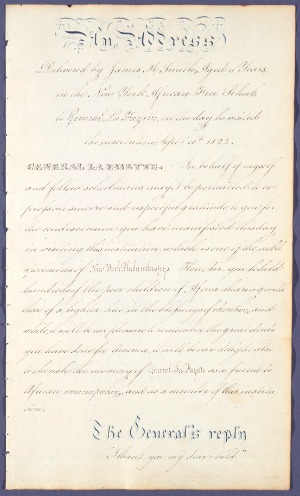 An Address
Delivered by James M. Smith, Aged 11 Years,
in the New York African Free School,
to General La Fayette, on the day he visited
the institution, Sept. 10th 1824.
GENERAL LAFAYETTE, In behalf of myself
and fellow schoolmates may I be permitted to ex-
press our sincere and respectful gratitude to you for
the condescension you have manifested this day
in visiting this institution, which is one of the noblest
specimens of New York Philanthropy. Here, Sir, you behold
hundreds of the poor children of Africa sharing with
those of a lighter hue in the blessings of education; and
while it will be our pleasure to remember the great deeds
you have done for America, it will be our delight also
to cherish the memory of General La Fayette as a friend to
African emancipation, and as a member of this institu-
tion.
The General's reply
"I thank you my dear child"